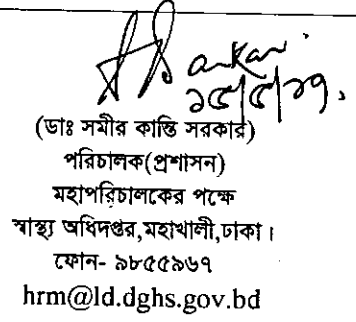 Sarkar
১৫/৫/১৭
(ডাঃ সমীর কান্তি সরকার)
পরিচালক(প্রশাসন)
মহাপরিচালকের পক্ষে
স্বাস্থ্য অধিদপ্তর,মহাখালী,ঢাকা।
ফোন- ৯৮৫৫৯৬৭
hrm@ld.dghs.gov.bd